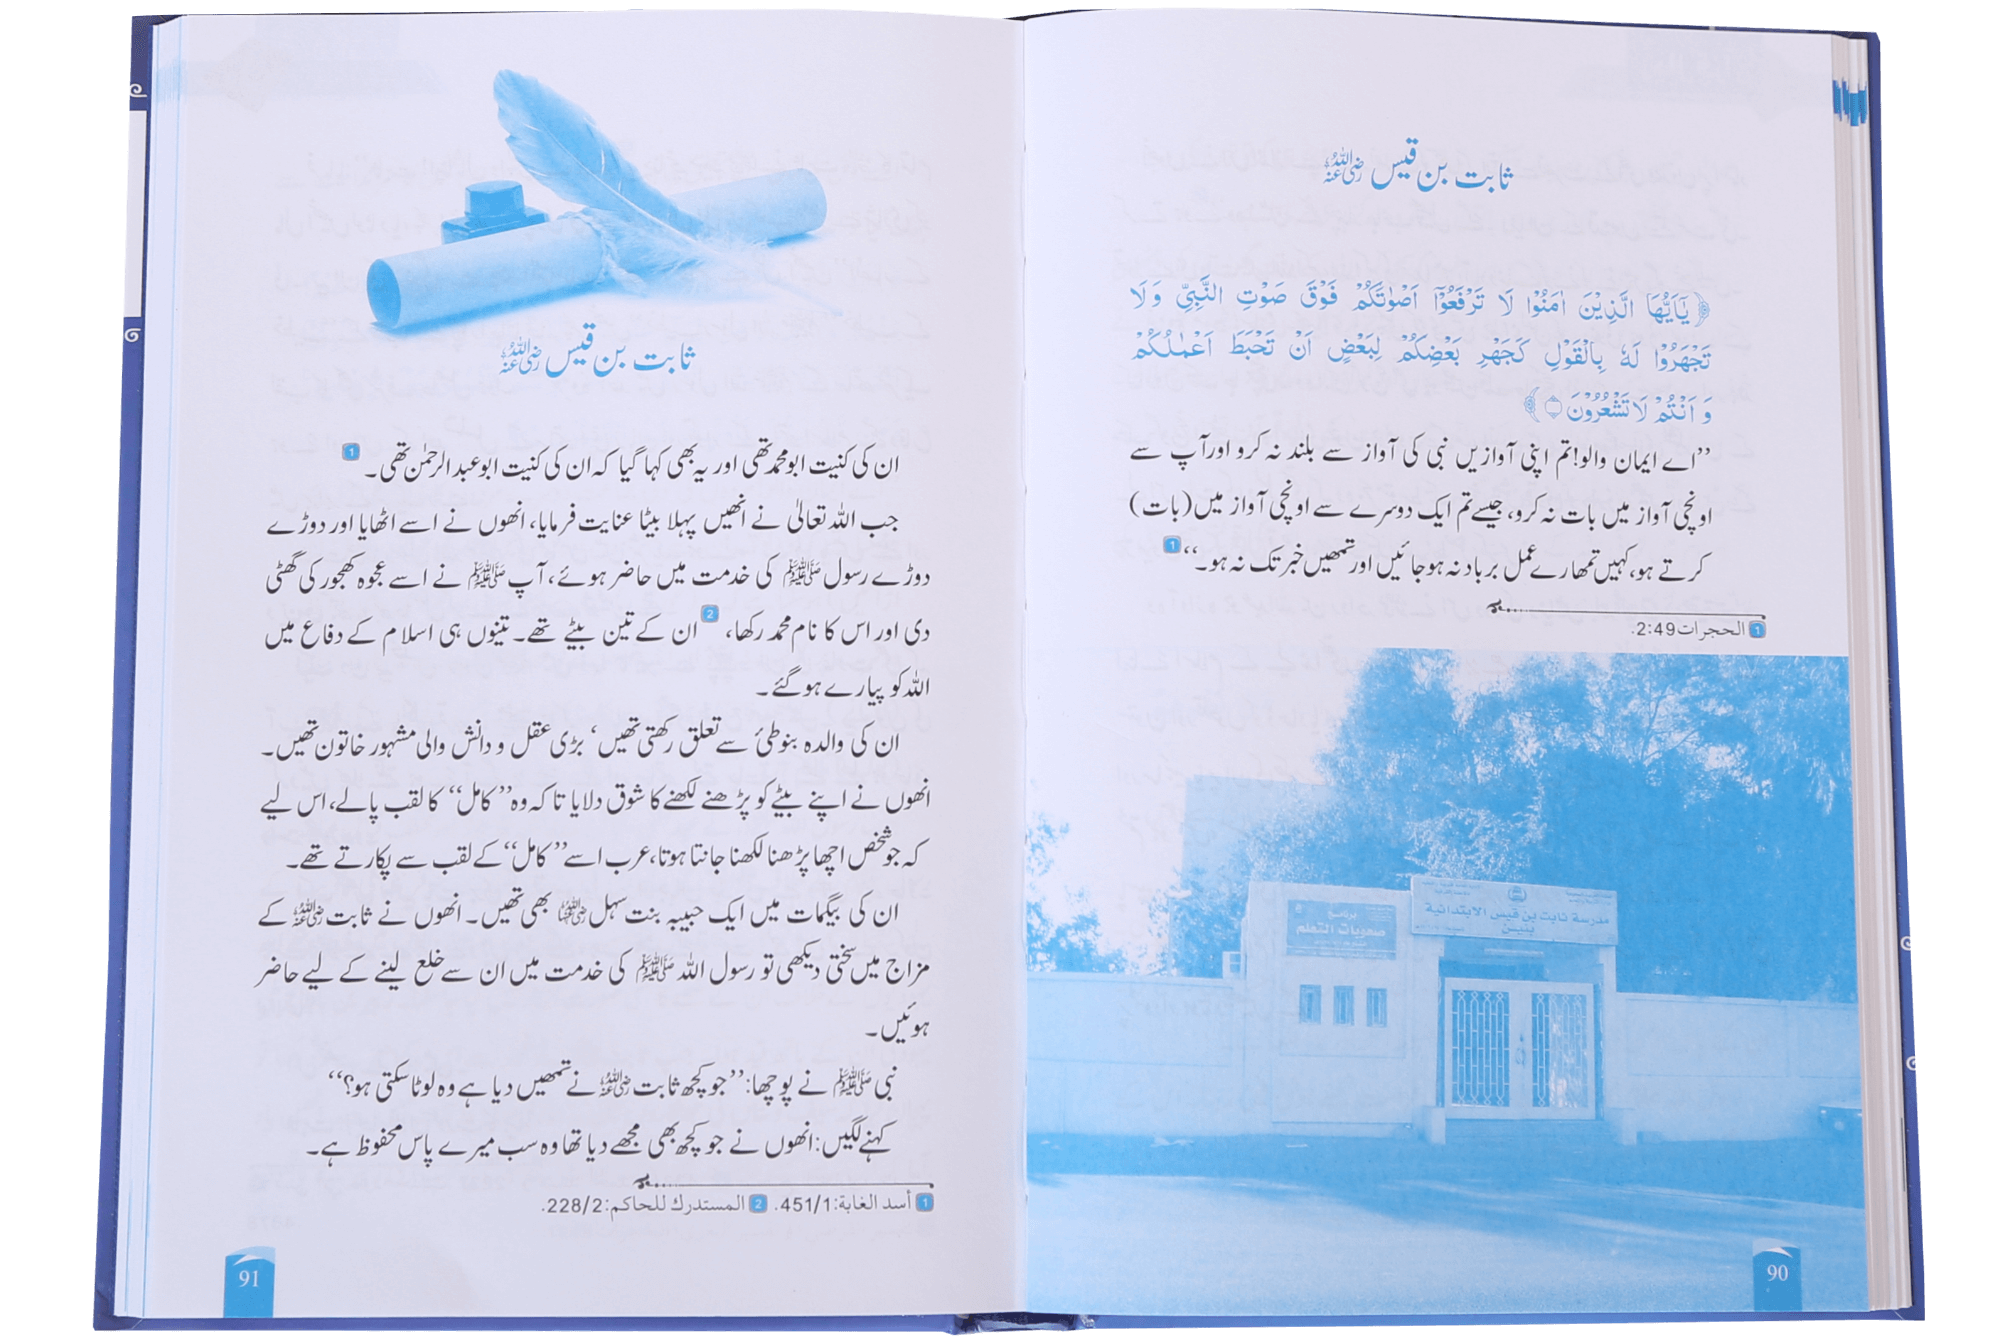 ثابت بن قیس رضی اللہ عنہ
﴿یٰۤاَیُّهَا الَّذِیْنَ اٰمَنُوْا لَا تَرْفَعُوْۤا اَصْوٰتَكُمْ فَوْقَ صَوْتِ النَّبِیِّ وَ لَا
تَجْهَرُوْا لَهٗ بِالْقَوْلِ كَجَهْرِ بَعْضِكُمْ لِبَعْضٍ اَنْ تَحْبَطَ اَعْمٰلُكُمْ
وَ اَنْتُمْ لَا تَشْعُرُوْنَ ﴾
’’اے ایمان والو! تم اپنی آوازیں نبی کی آواز سے بلند نہ کرو اور آپ سے
اونچی آواز میں بات نہ کرو، جیسے تم ایک دوسرے سے اونچی آواز میں (بات)
کرتے ہو، کہیں تمھارے عمل برباد نہ ہو جائیں اور تمھیں خبر تک نہ ہو۔‘‘ 1
1 الحجرات 2:49.
برنامج
صعوبات التعلم
مدرسة ثابت بن قيس الابتدائية
90
ثابت بن قیس رضی اللہ عنہ
ان کی کنیت ابو محمد تھی اور یہ بھی کہا گیا کہ ان کی کنیت ابو عبد الرحمٰن تھی۔ 1
جب اللہ تعالیٰ نے انھیں پہلا بیٹا عنایت فرمایا، انھوں نے اسے اٹھایا اور دوڑے
دوڑے رسول ﷺ کی خدمت میں حاضر ہوئے، آپ ﷺ نے اسے عجوہ کھجور کی گھٹی
دی اور اس کا نام محمد رکھا، 2 ان کے تین بیٹے تھے۔ تینوں ہی اسلام کے دفاع میں
اللہ کو پیارے ہو گئے۔
ان کی والدہ بنو طیٔ سے تعلق رکھتی تھیں‘ بڑی عقل و دانش والی مشہور خاتون تھیں۔
انھوں نے اپنے بیٹے کو پڑھنے لکھنے کا شوق دلایا تا کہ وہ ’’کامل‘‘ کا لقب پالے، اس لیے
کہ جو شخص اچھا پڑھنا لکھنا جانتا ہوتا، عرب اسے ’’کامل‘‘ کے لقب سے پکارتے تھے۔
ان کی بیگمات میں ایک حبیبہ بنت سہل رضی اللہ عنہا بھی تھیں۔ انھوں نے ثابت رضی اللہ عنہ کے
مزاج میں سختی دیکھی تو رسول اللہ ﷺ کی خدمت میں ان سے خلع لینے کے لیے حاضر
ہوئیں۔
نبی ﷺ نے پوچھا: ’’جو کچھ ثابت رضی اللہ عنہ نے تمھیں دیا ہے وہ لوٹا سکتی ہو؟‘‘
کہنے لگیں: انھوں نے جو کچھ بھی مجھے دیا تھا وہ سب میرے پاس محفوظ ہے۔
1 أسد الغابة: 451/1. 2 المستدرك للحاكم: 228/2.
91